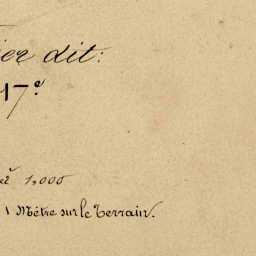 dit:
17ᵉ
1,000
1 Mètre sur le Terrain.